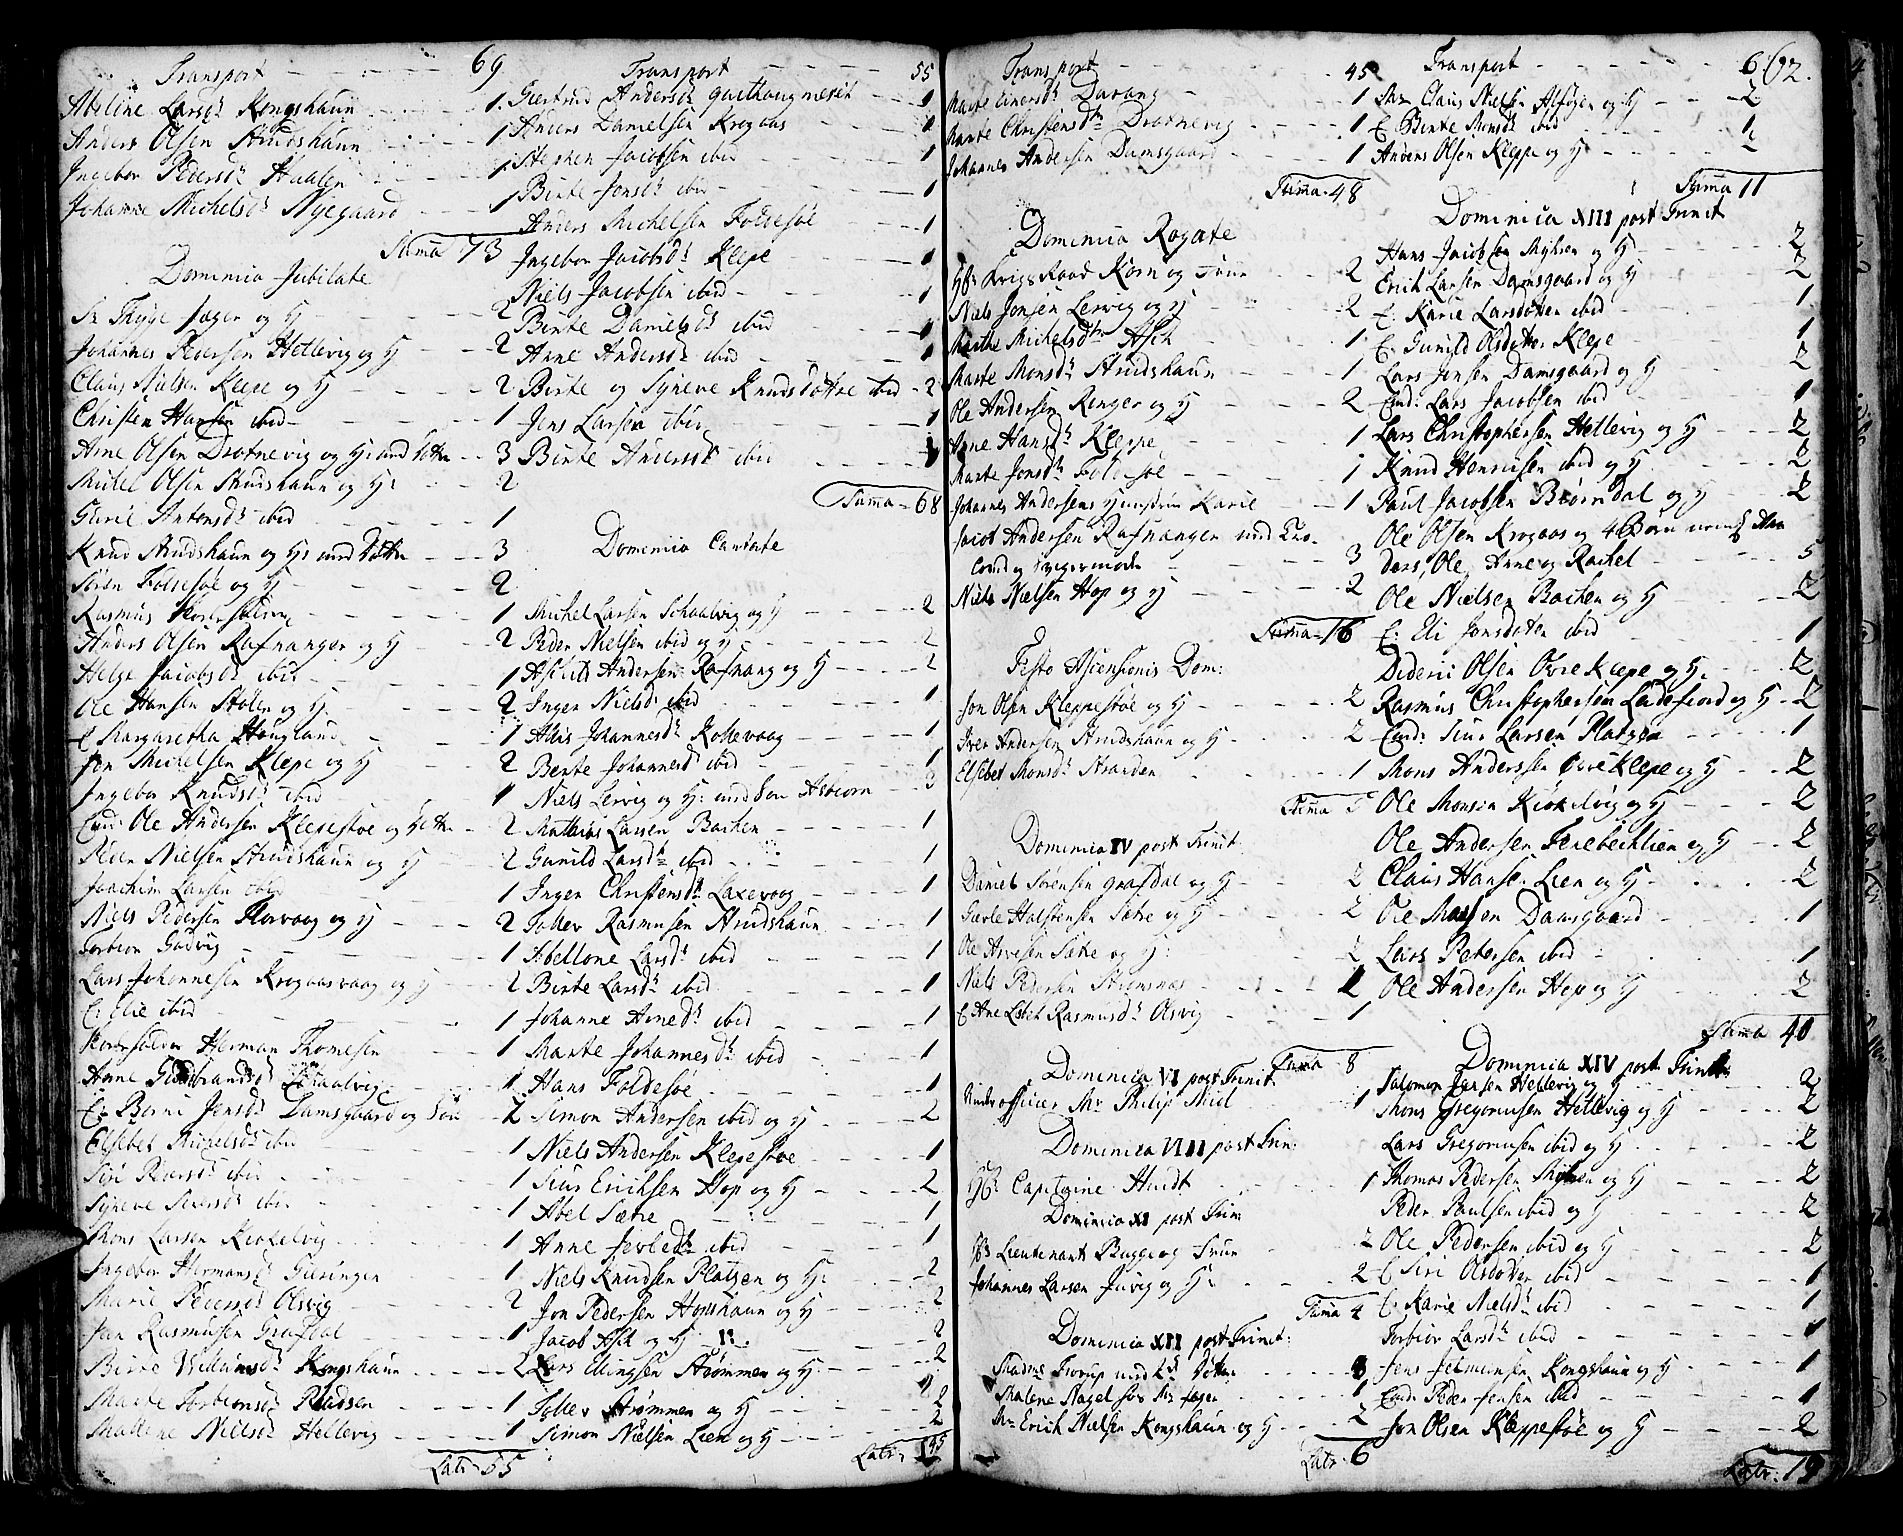 Transport - - - 69
Abeline Larsdr Kongshaun - - 1
Anders Olsen Strudshaun - - 1
Ingebor Pedersdr Haalen - - 1
Johanne Michelsdr Nyegaard - - 1
Summa 73
Dominica Jubilate
Sr Thyge Jæger og H - - 2
Johannes Pedersen Hetlevig og H - - 2
Claus Nielsen Klepe og H - - 2
Christen Hansen ibid - - 1
Arne Olsen Drotnevig og H: med Dotter - - 3
Michel Olsen Strudshaun og H: - - 2
Guroe Antonsdr ibid - - 1
Knud Strudshaun og H: med Dotter - - 3
Sören Follesöe og H - - 2
Rasmus - - 1
Anders Olsen Rafnanger og H - - 2
Helge Jacobsdr ibid - - 1
Ole Hansen Stölen og H. - - 2
E Margaretha Haugland - - 1
Jon Michelsen Klepe og H - - 2
Ingebor Knudsdr ibid - - 1
Ole Andersen Klepestöe og Dotter - - 2
Peder Nielsen Strudshaun og H - - 2
Joachim Larsen ibid - - 1
Niels Pedersen Florvaag og H - - 2
Torbiorn Godvig - - 1
Lars Johannesen Krogaasvaag og H - - 2
E: Elie ibid - - 1
Herman Thomesen - - 1
Anne Guldbrandsdr Skaalvig - - 1
E: Borni Jensdr Damsgaard og Sön - - 2
Elsebet Michelsdr ibid - - 1
Siri Iversdr ibid - - 1
Syneve Siversdr ibid - - 1
Mons Larsen Kirkelvig - - 1
Ingebor Hermansdr - - 1
Marie Pedersdr Olsvig - - 2
Jan Rasmusen Grafdal - - 1
Birte Willumsdr Kongshaun - - 2
Marte Torbiornsdr Knudsen - - 1
Mallene Nielsdr Hetlevig - - 1
Latr: 55
Transport - - - 55
Giertrud Andersdr - - 1
Anders Danielsen Krogaas - - 1
Stephen Jacobsen ibid - - 1
Birte Jonsdr ibid - - 1
Anders Michelsen Follesöe - - 1
Ingebor Jacobsdr Klepe - - 1
Niels Jacobsen ibid - - 1
Birte Danielsdr ibid - - 1
Anne Andersdr ibid - - 1
Birte og Syneve Knudsdöttre ibid - - 2
Jens Larsen ibid - - 1
Birte Andersdr ibid - - 1
Summa - 68
Dominica Cantate
Michel Larsen Schaalvig og H - - 2
Peder Nielsen ibid og H - - 2
Aschild Andersen Rafnang og H - - 2
Inger Nielsdr ibid - - 1
Allis Johannesdr Kollevaag - - 1
Bente Johannesdr ibid - - 1
Niels Lervig og H: med Sön Asbiorn - - 3
Mathias Larsen Bachen - - 1
Gunild Larsdr ibid - - 1
Inger Christensdr Laxevaag - - 1
Tollev Rasmusen Strudshaun - - 1
Abellone Larsdr ibid - - 1
Birte Larsdr ibid - - 1
Johanne Arnedr ibid - - 1
Marte Johannesdr ibid - - 1
Hans Foldesöe - - 1
Simon Andersen ibid og H - - 2
Niels Andersen Klepestöe - - 1
Siur Erichsen Hop og H - - 2
Abel Sætre - - 1
Anne Jerledr ibid - - 1
Niels Knudsen Platzen og H: - - 2
Jon Pedersen Honshaun og H - - 2
Jacob Ask og H - - 2
Lars Ellingsen Strömmen og H - - 2
Tollev Strömmen og H - - 2
Simon Nielsen Lien og H - - 2
Latr: 45
Transport - - - 45
Marte Einersdr Davang - - 1
Marte Christensdr Drotnevig - - 1
Johannes Andersen Damsgaard - - 1
Summa - 48
Dominica Rogate
Hr Krigs Raad Korn og Frue - - 2
Niels Jonsen Lervig og H - - 2
Marthe Michelsdtr Asch - - 1
Marte Monsdr Strudshaun - - 1
Ole Andersen Ringer og H - - 2
Arne Hansdr Kleppe - - 1
Marte Jonsdr Follesöe - - 1
Johannes Andersens Hunstru Karie - - 1
Jacob Andersen Rafnanger med Tro-
lovede og Svigermoder - - 3
Niels Nielsen Hop og H - - 2
Summa - 16
Festo Ascensionis Dom:
Jon Olsen Kleppestöe og H - - 2
Iver Andersen Strudshaun og H - - 2
Elsebet Monsdr Stranden - - 1
Summa 5
Dominica IV post Trinit:
Daniel Sörensen Grafdal og H - - 2
Gævle Halstensen Sætre og H - - 2
Ole Arvesen Sætre og H: - - 2
Niels Pedersen Strömsnæs - - 1
E Ane Lisbet Rasmusdr Olsvig - - 1
Summa 8
Dominica VI post Trinit:
Under officeer Mr Philip Meiel - - 1
Dominica VIII post Trin:
Hr Capitaine Hundt - - 1
Dominica XI post Trin
Hr Lieutenant Bugge og Frue - - 2
Johannes Larsen Juvig og H: - - 2
Summa 4
Dominica XII post Trinit:
Madme Forup med Dötter - - 3
Malene Nagel hos Mr Jæger - - 1
Mr Erich Nielsen Kongshaun og H - - 2
Latr: 6
62.
Transport - - - 6
Mr Claus Nielsen Alföyen og H - - 2
E Birte Monsdr ibid - - 1
Anders Olsen Kleppe og H - - 2
Summa 11
Dominica XIII post Trinit
Hans Jacobsen Myhren og H - - 2
Erich Larsen Damsgaard og H - - 2
E. Karie Larsdotter ibid - - 1
E. Gunild Olsdotter Klepe - - 1
Lars Jensen Damsgaard og H - - 2
Lars Jacobsen ibid - - 1
Lars Christophersen Hetlevig og H - - 2
Knud Henrichsen ibid og H - - 2
Paul Jacobsen Biörndal og H - - 2
Ole Olsen Krogaas og 4 Börn
ders, Ole, Anne og Rachel - - 5
Ole Nielsen Bachen og H - - 2
E: Eli Jonsdotter ibid - - 1
Dideric Olsen Övre Klepe og H. - - 2
Rasmus Christophersen Ladefiord og H - 2
Siur Larsen Platzen - - 1
Mons Anderssen Övre Klepe og H - - 2
Ole Monsen Kirkelvig og H - - 2
Ole Andersen Ferebechlien og H - - 2
Claus Hansen Lien og H - - 2
Ole Madsen Damsgaard - - 1
Lars Petersen ibid - - 1
Ole Andersen Hop og H - - 2
Summa 40
Dominica XIV post Trinit:
Salomon Jansen Hetlevig og H - - 2
Mons Gregoriusen Hetlevig og H - - 2
Lars Gregoriusen ibid og H - - 2
Thomas Pedersen Myhren og H - - 2
Peder Paulsen ibid og H - - 2
Ole Pedersen ibid og H - - 2
E Siri Olsdotter ibid - - 1
E. Karie Nielsdr ibid - - 1
Torbior Larsdr ibid - - 1
Jens Salmunsen Kongshaun og H - - 1
Peder Jensen ibid - - 1
Jon Olsen Kleppestöe og H - - 2
Latr: 19